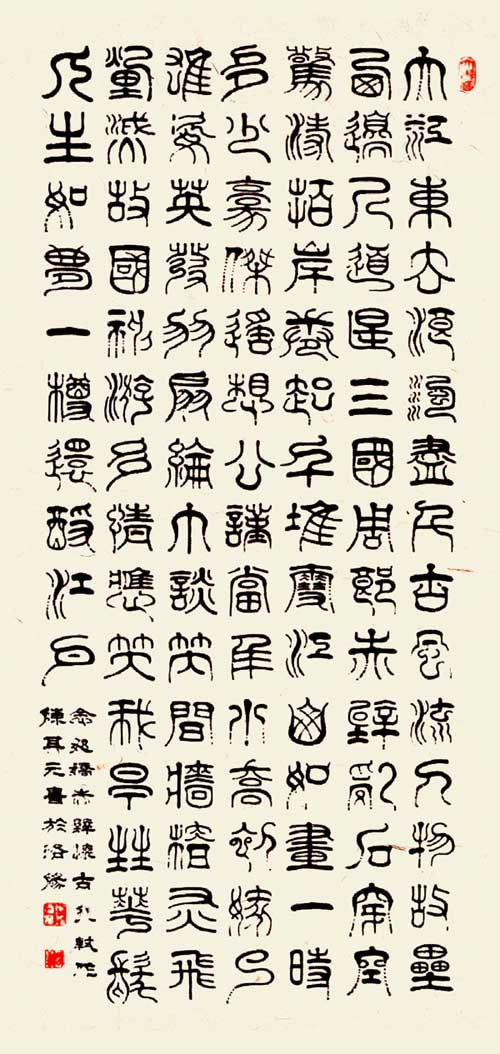 大江東去浪淘盡千古風流人物故壘
西邊人道是三國周郎赤壁亂石穿空
驚濤拍岸卷起千堆雪江山如畫一時
多少豪傑遙想公謹當年小喬初嫁了
雄姿英發羽扇綸巾談笑間牆櫓灰飛
煙滅故國神游多情應笑我早生華髮
人生如夢一樽還酹江月
念奴嬌赤壁懷古 軾作
元書於洛